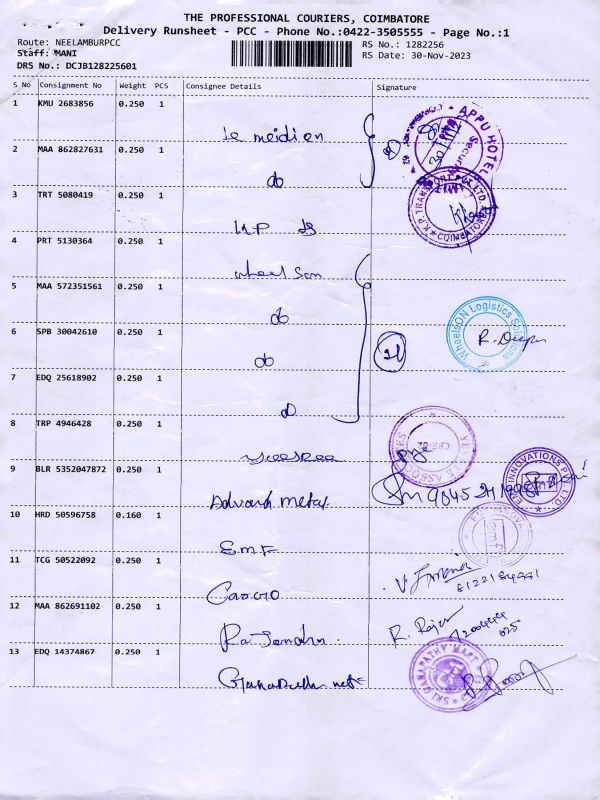 THE PROFESSIONAL COURIERS, COIMBATORE
Delivery Runsheet - PCC - Phone No.:0422-3505555 - Page No.:1
Route: NEELAMBURPCC
RS No.: 1282256
Staff: MANI
RS Date: 30-Nov-2023
DRS No.: DCJB128225601
S No Consignment No Weight PCS Consignee Details Signature
1 KMU 2683856 0.250 1
Le meidien
APPU HOTEL
2 MAA 862827631 0.250 1
do
3 TRT 5080419 0.250 1
K.P
COIMBATORE
4 PRT 5130364 0.250 1
wheel Son
5 MAA 572351561 0.250 1
do
WheelsON Logistics Solutions
6 SPB 30042610 0.250 1
do
R. Deepa
7 EDQ 25618902 0.250 1
do
8 TRP 4946428 0.250 1
ASSOCIATES
9 BLR 5352047872 0.250 1
Advance Metal
INNOVATIONS PVT. LTD
10 HRD 50596758 0.160 1
EMF
emf
11 TCG 50522092 0.250 1
12 MAA 862691102 0.250 1
Rajendra.
R. Rajen
13 EDQ 14374867 0.250 1
SRI GANAPATHY MART